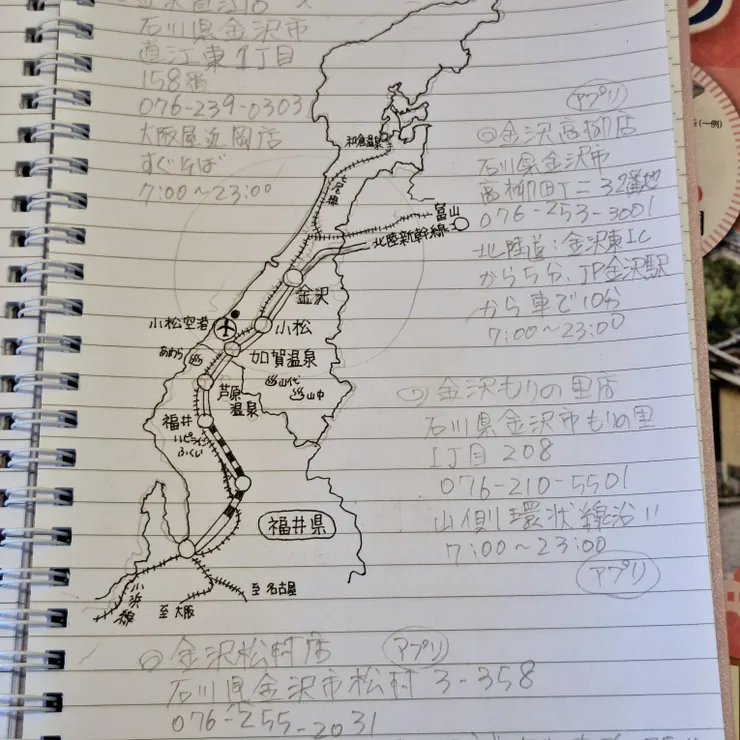 石川県金沢市
直江東1丁目
158番
076-239-0303
大阪屋近岡店
すぐそば
7:00～23:00
アプリ
◎金沢高柳店
石川県金沢市
高柳町丁ニ32番地
076-253-3001
北陸道:金沢東IC
から5分、JP金沢駅
から車で10分
7:00～23:00
和倉温泉
七尾線
富山
北陸新幹線
金沢
小松空港
小松
加賀温泉
あわら
山代
山中
芦原
温泉
福井
ハピライン
ふくい
福井県
小浜線
至大阪
至名古屋
◎金沢もりの里店
石川県金沢市もりの里
1丁目208
076-210-5501
山側環状線沿い
7:00～23:00
アプリ
◎金沢松村店
アプリ
石川県金沢市松村3-358
076-255-2031